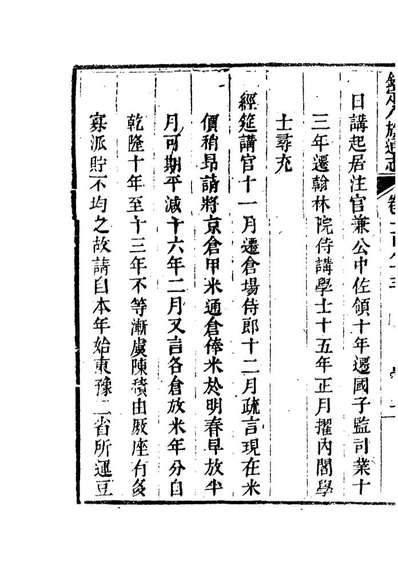 欽定八旗通志 卷一百八十五
日講起居注官兼公中佐領十年遷國子監司業十
三年遷翰林院侍講學士十五年正月擢內閣學
士尋充
經筵講官十一月遷倉場侍郎十二月疏言現在米
價稍昂請將京倉甲米通倉俸米於明春早放半
月可期平減十六年二月又言各倉放米年分自
乾隆十年至十三年不等漸虞陳積由厫座有多
寡派貯不均之故請自本年始東豫二省所運豆